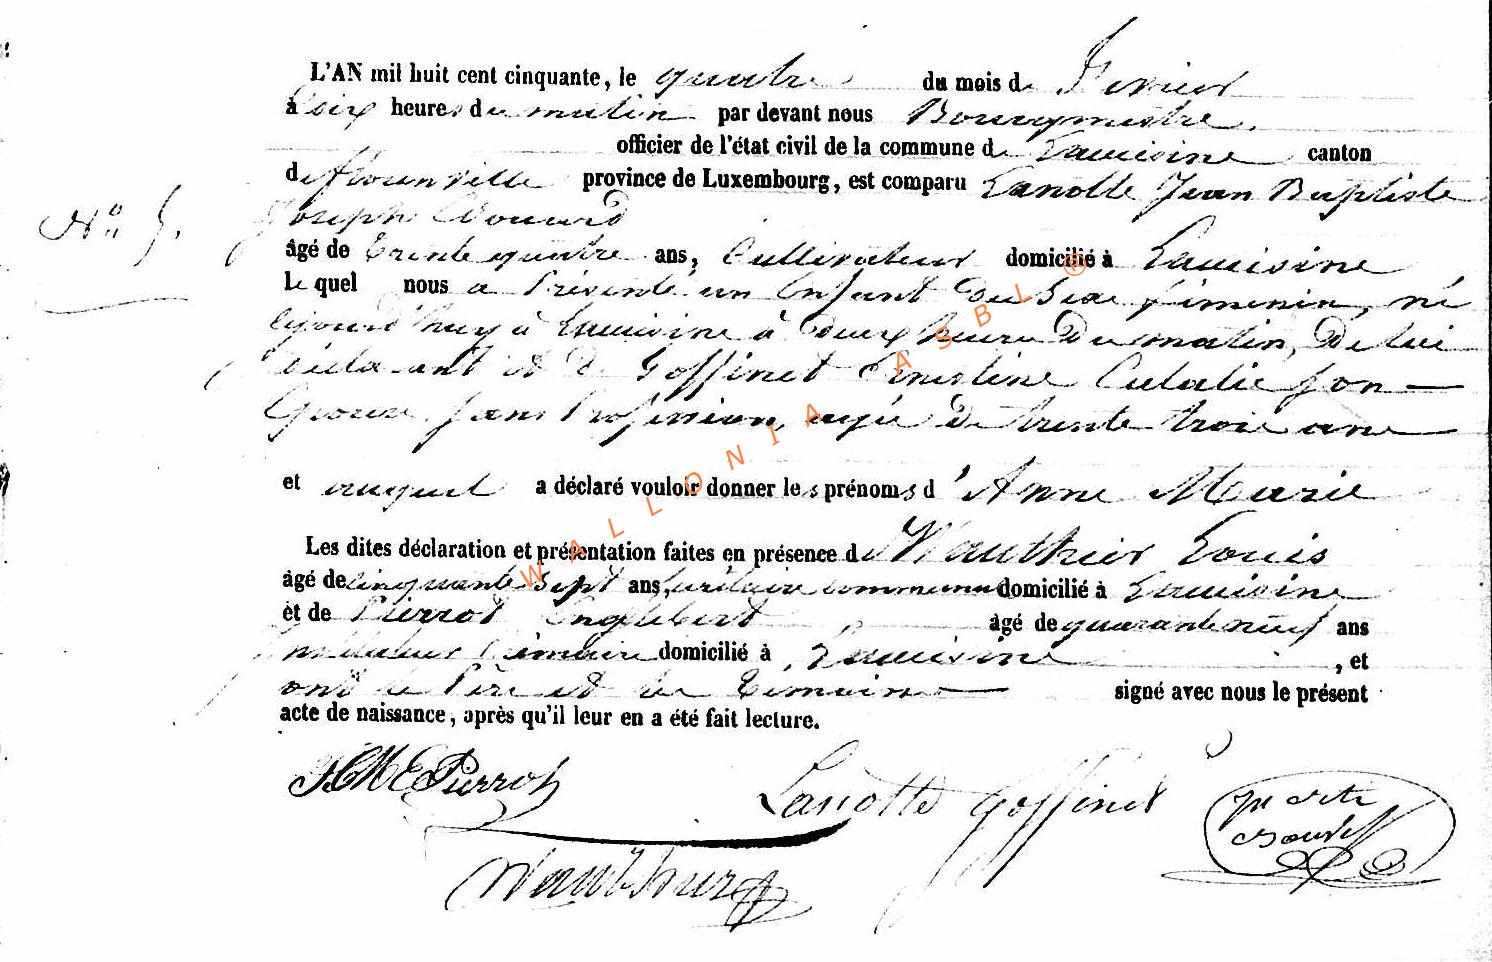 L'AN mil huit cent cinquante, le quatre du mois de Fevrier
à six heures du matin par devant nous Bourgmestre
officier de l'état civil de la commune de Lacuisine canton
de florenville province de Luxembourg, est comparu Lanotte Jean Baptiste
N° 5. Joseph Edouard
âgé de trente quatre ans, Cultivateur domicilié à Lacuisine
Le quel nous a Présenté un Enfant Du Sexe féminin, né
aujourd'huy à Lacuisine à deux heure Du matin, De lui
déclarant et de Goffinet Ernestine Eulalie son
Epouse sans Profession, agée De trente trois ans
et auquel a déclaré vouloir donner les prénoms d'Anne Marie
Les dites déclaration et présentation faites en présence de Wauthier Louis
âgé de cinquante sept ans, secrétaire communal domicilié à Lacuisine
et de Pierrot Englebert âgé de quarante neuf ans
Instituteur Primaire domicilié à Lacuisine, et
ont le Père et les Temoins signé avec nous le présent
acte de naissance, après qu'il leur en a été fait lecture.
Pierrot Lanotte Goffinet
Wauthier
WALLONIA ASBL ®